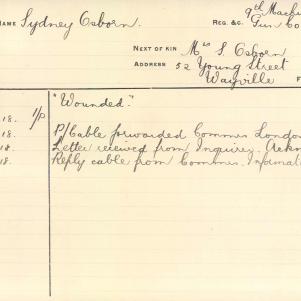 NAME Sydney Osborn. REG. &C. 9th Machi
Gun Co
NEXT OF KIN Mrs S Osborn
ADDRESS 52 Young Street
Wayville F
"Wounded."
18. 1/P P/Cable forwarded Commns London
18. Letter received from Inquirer. Ackn
18. Reply cable from Commns. Informat